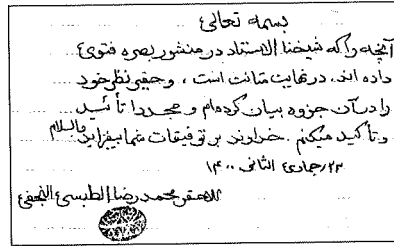 بسمه تعالی
آنچه را که شیخنا الاستاد در منشور بصره فتوی
داده اند، در نهایت متانت است، و حقیر نظر خود
را در آن جزوه بیان کرده‌ام و مجددا تأئید
و تأکید میکنم. خداوند بر توفیقات شما بیفزاید والسلام
۲۳ / جمادی الثانی ۱۴۰۰
الاحقر محمد رضا الطبسی النجفی